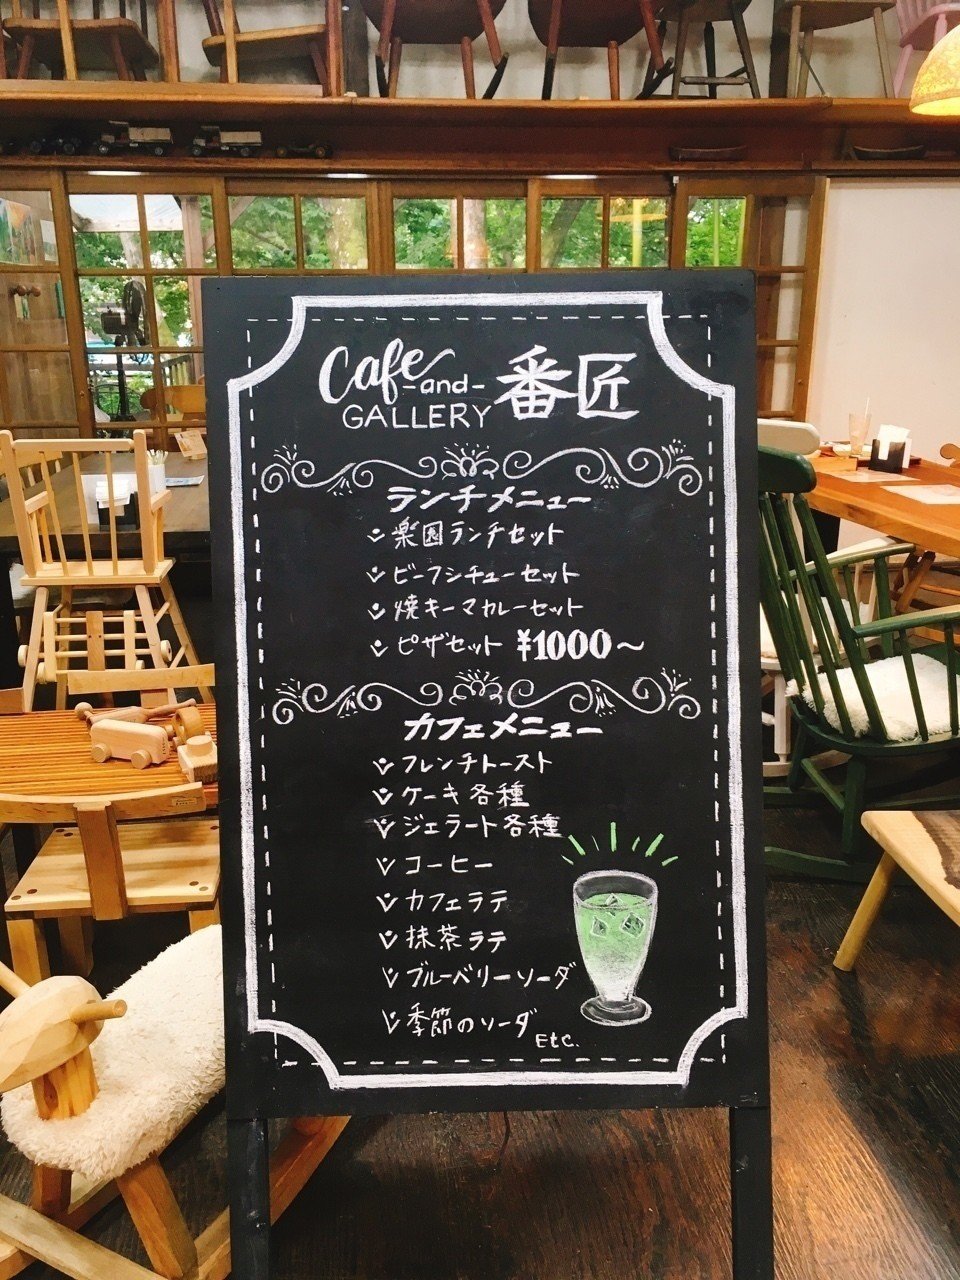 Cafe
-and-
GALLERY 番匠
ランチメニュー
楽園ランチセット
ビーフシチューセット
焼キーマカレーセット
ピザセット ¥1000〜
カフェメニュー
フレンチトースト
ケーキ各種
ジェラート各種
コーヒー
カフェラテ
抹茶ラテ
ブルーベリーソーダ
季節のソーダ
Etc.